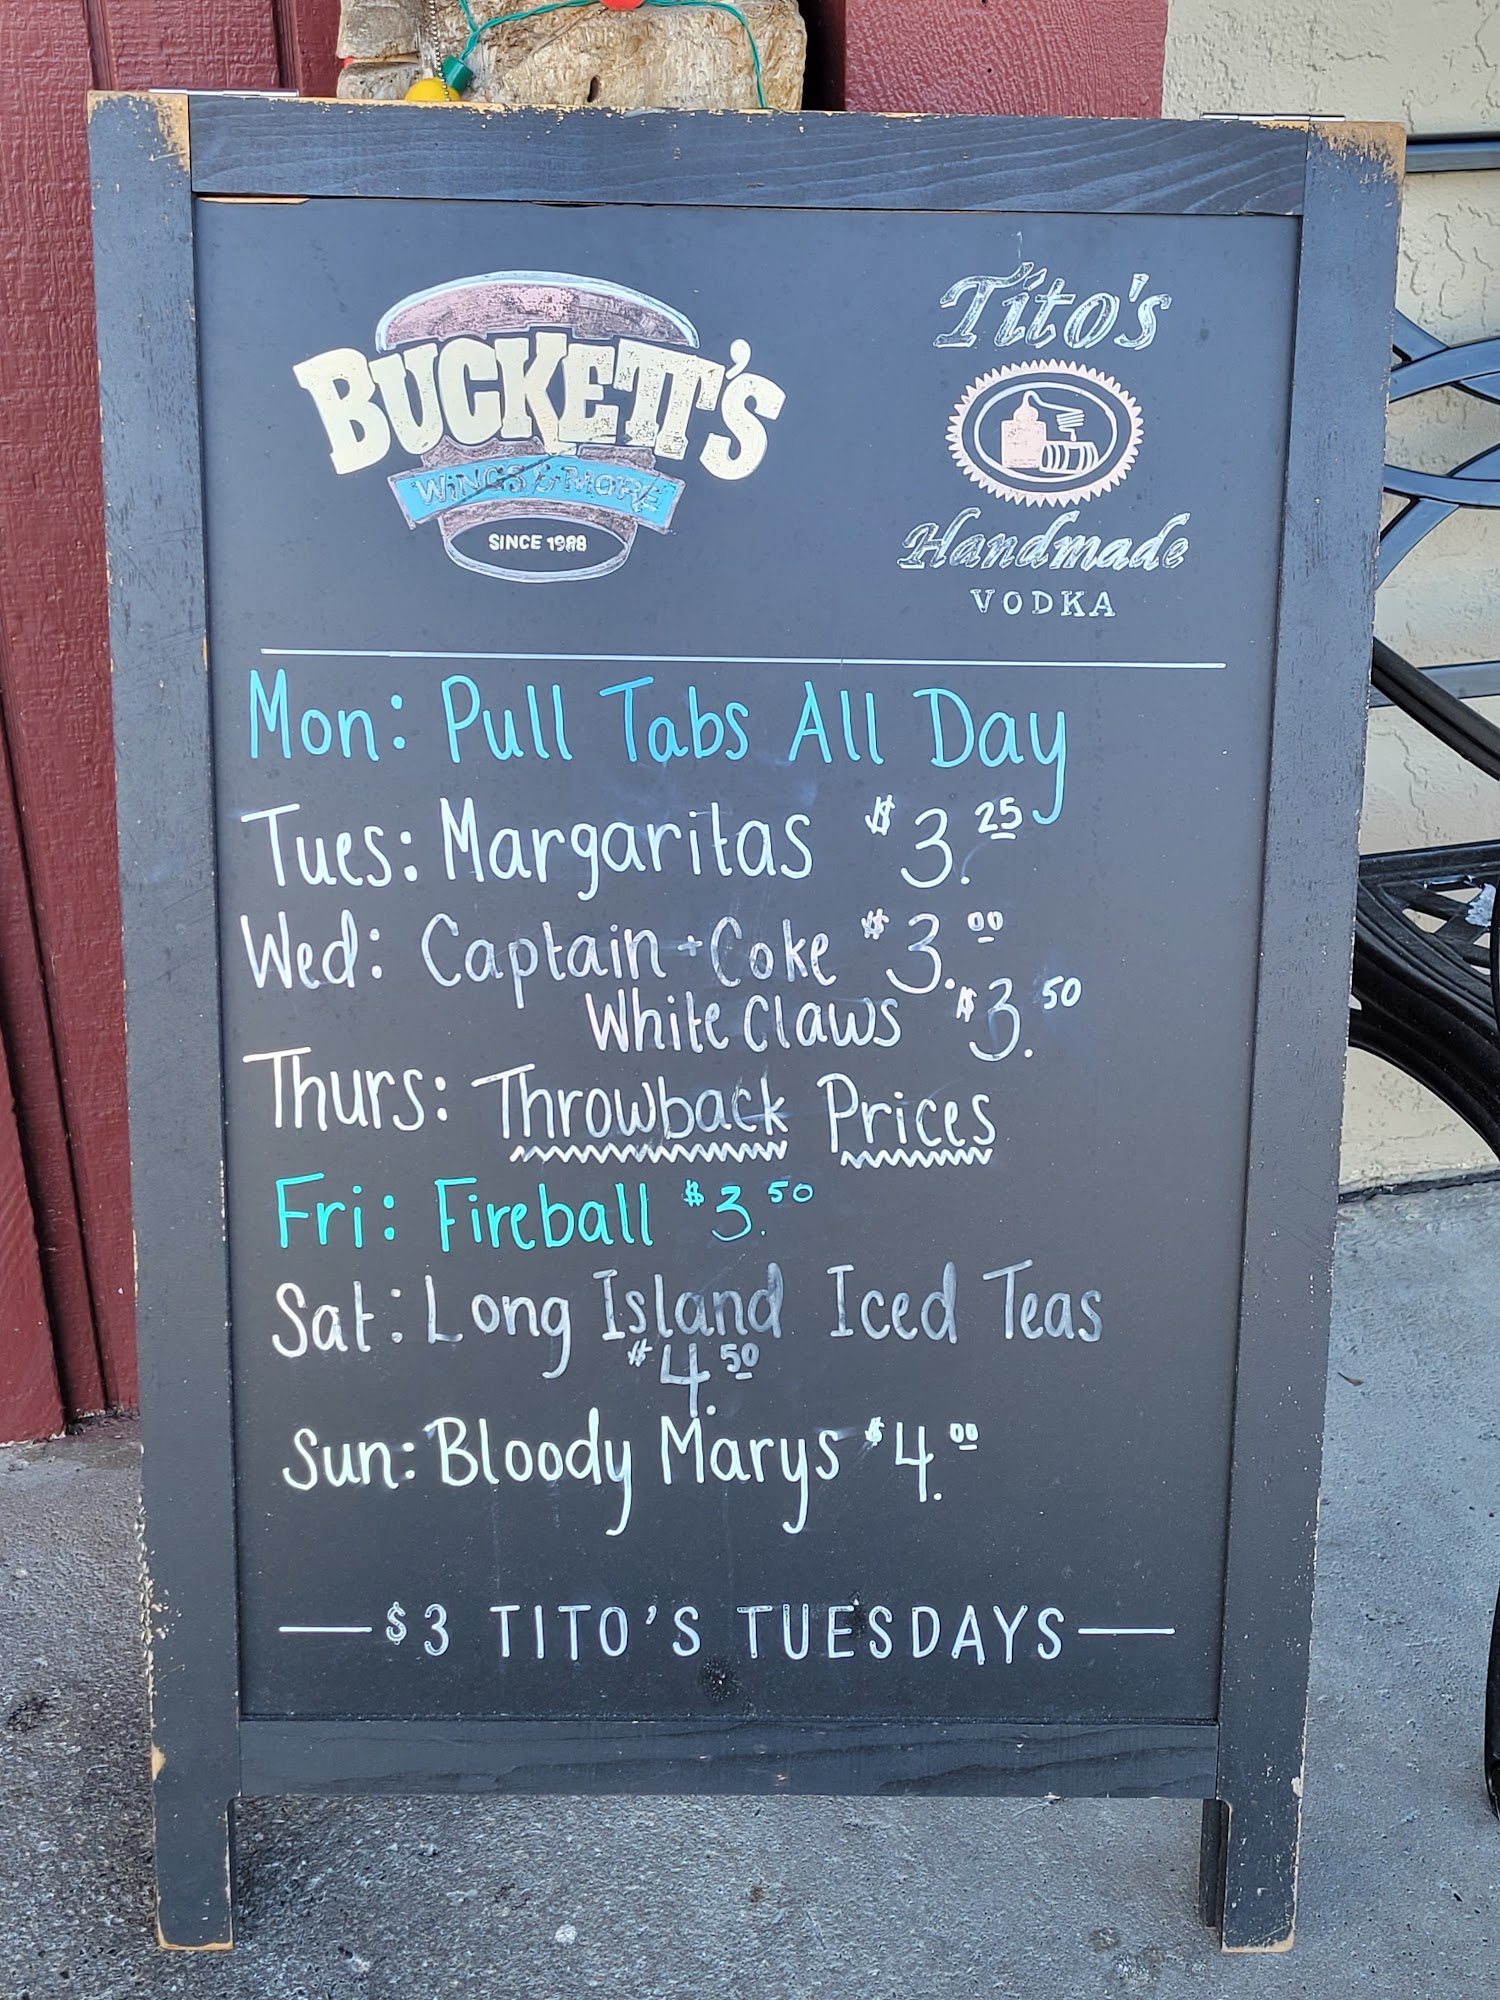 BUCKETT'S
WINGS & MORE
SINCE 1988
Tito's
Handmade
VODKA
Mon: Pull Tabs All Day
Tues: Margaritas $3.25
Wed: Captain + Coke $3.00
White Claws $3.50
Thurs: Throwback Prices
Fri: Fireball $3.50
Sat: Long Island Iced Teas
$4.50
Sun: Bloody Marys $4.00
—$3 TITO'S TUESDAYS—